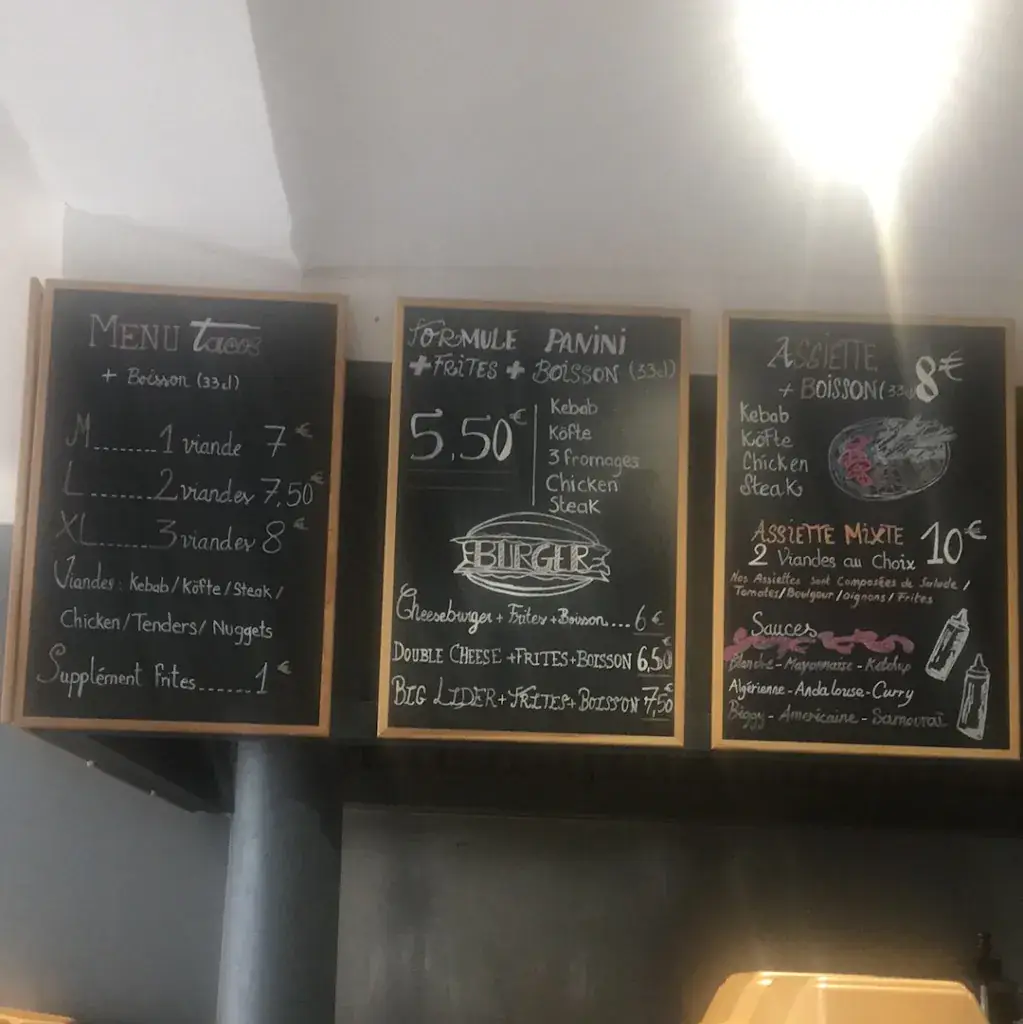 MENU tacos
+ Boisson (33cl)
M........1 viande 7€
L.......2 viandes 7,50€
XL.......3 viandes 8€
Viandes : Kebab/Köfte/Steak/
Chicken/Tenders/Nuggets
Supplément Frites......1€
FORMULE PANINI
+ FRITES + BOISSON (33cl)
5,50€
Kebab
Köfte
3 fromages
Chicken
Steak
BURGER
Cheeseburger + Frites + Boisson....6€
DOUBLE CHEESE + FRITES + BOISSON 6,50€
BIG LIDER + FRITES + BOISSON 7,50€
ASSIETTE 8€
+ BOISSON (33cl)
Kebab
Köfte
Chicken
Steak
ASSIETTE MIXTE 10€
2 Viandes au Choix
Nos Assiettes sont Composées de Salade /
Tomates/Boulgour/oignons/Frites
Sauces
Blanche - Mayonnaise - Ketchup
Algérienne - Andalouse - Curry
Biggy - Americaine - Samouraï